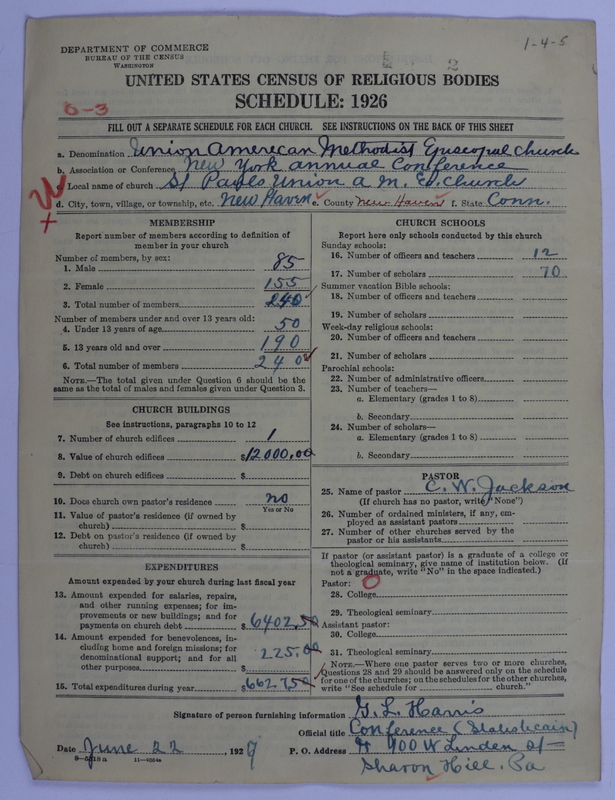 1-4-5
2
DEPARTMENT OF COMMERCE
BUREAU OF THE CENSUS
WASHINGTON
UNITED STATES CENSUS OF RELIGIOUS BODIES
SCHEDULE: 1926
6-3
FILL OUT A SEPARATE SCHEDULE FOR EACH CHURCH. SEE INSTRUCTIONS ON THE BACK OF THIS SHEET
a. Denomination Union American Methodist Episcopal Church
b. Association or Conference New York annual Conference
c. Local name of church St Pauls Union a m. E. Church
d. City, town, village, or township, etc. New Haven e. County New Haven f. State Conn.
MEMBERSHIP
Report number of members according to definition of
member in your church
Number of members, by sex:
1. Male 85
2. Female 155
3. Total number of members 240
Number of members under and over 13 years old:
4. Under 13 years of age 50
5. 13 years old and over 190
6. Total number of members 240
NOTE.—The total given under Question 6 should be the
same as the total of males and females given under Question 3.
CHURCH BUILDINGS
See instructions, paragraphs 10 to 12
7. Number of church edifices 1
8. Value of church edifices $12000.00
9. Debt on church edifices $
10. Does church own pastor's residence no
Yes or No
11. Value of pastor's residence (if owned by
church) $
12. Debt on pastor's residence (if owned by
church) $
EXPENDITURES
Amount expended by your church during last fiscal year
13. Amount expended for salaries, repairs,
and other running expenses; for im-
provements or new buildings; and for
payments on church debt $6402.50
14. Amount expended for benevolences, in-
cluding home and foreign missions; for
denominational support; and for all
other purposes $225.00
15. Total expenditures during year $6627.50
CHURCH SCHOOLS
Report here only schools conducted by this church
Sunday schools:
16. Number of officers and teachers 12
17. Number of scholars 70
Summer vacation Bible schools:
18. Number of officers and teachers
19. Number of scholars
Week-day religious schools:
20. Number of officers and teachers
21. Number of scholars
Parochial schools:
22. Number of administrative officers
23. Number of teachers—
a. Elementary (grades 1 to 8)
b. Secondary
24. Number of scholars—
a. Elementary (grades 1 to 8)
b. Secondary
PASTOR
25. Name of pastor C. W. Jackson
(If church has no pastor, write "None")
26. Number of ordained ministers, if any, em-
ployed as assistant pastors
27. Number of other churches served by the
pastor or his assistants
If pastor (or assistant pastor) is a graduate of a college or
theological seminary, give name of institution below. (If
not a graduate, write "No" in the space indicated.)
Pastor: 0
28. College
29. Theological seminary
Assistant pastor:
30. College
31. Theological seminary
NOTE.—Where one pastor serves two or more churches,
Questions 28 and 29 should be answered only on the schedule
for one of the churches; on the schedules for the other churches,
write "See schedule for church."
Signature of person furnishing information G. L. Harris
Official title Conference (Statistician)
Date June 22 1927 P. O. Address 900 W Linden St
Sharon Hill. Pa